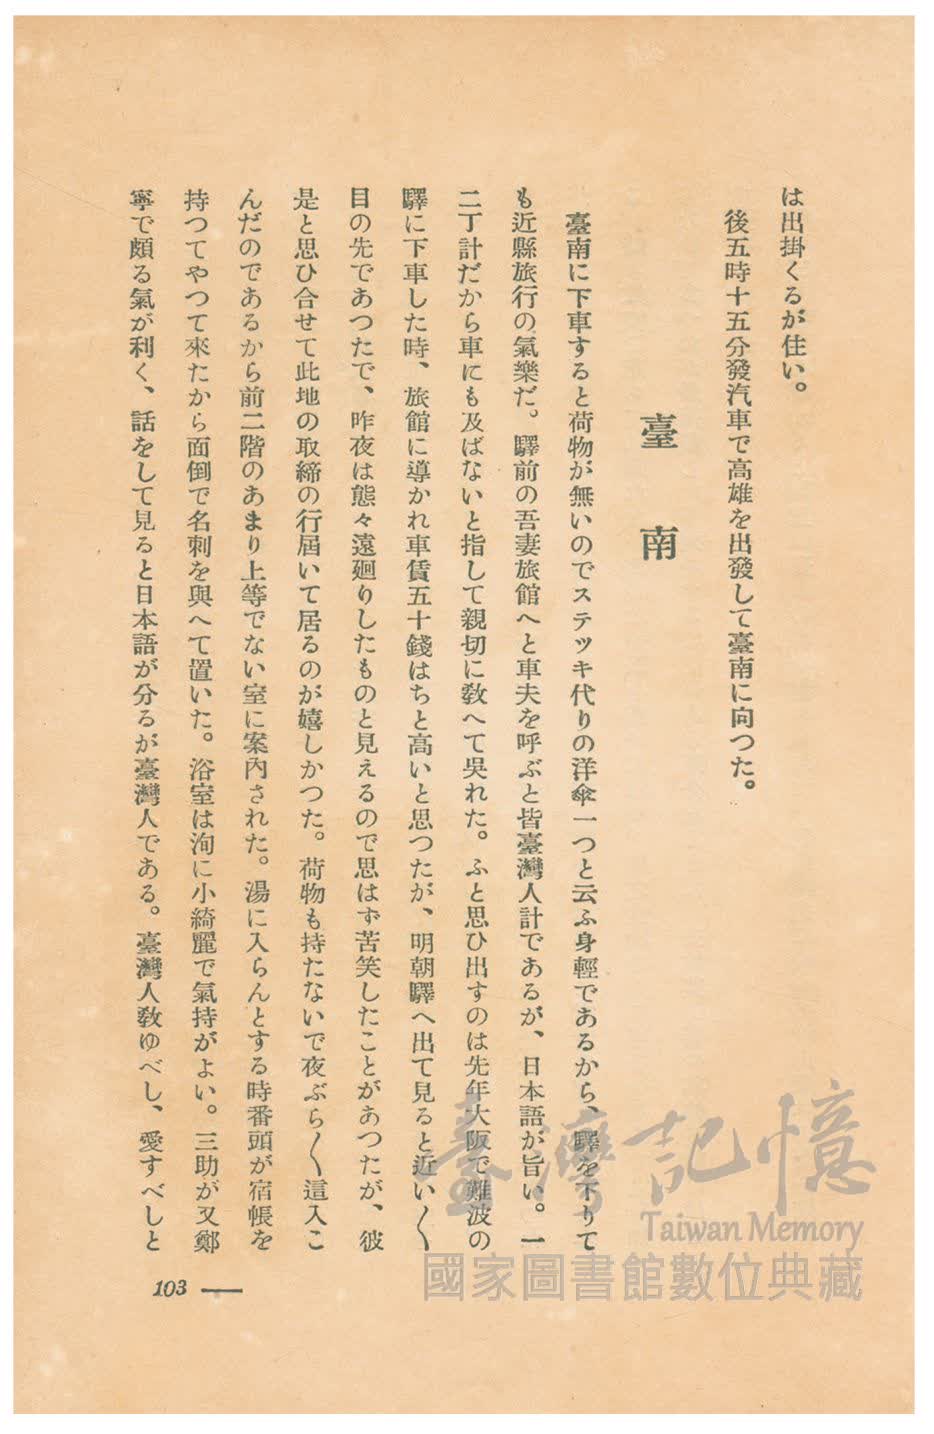 は出掛くるが住い。
後五時十五分發汽車で高雄を出發して臺南に向つた。
臺南
臺南に下車すると荷物が無いのでステツキ代りの洋傘一つと云ふ身輕であるから、驛を下りて
も近縣旅行の氣樂だ。驛前の吾妻旅館へと車夫を呼ぶと皆臺灣人計であるが、日本語が旨い。一
二丁計だから車にも及ばないと指して親切に敎へて吳れた。ふと思ひ出すのは先年大阪で難波の
驛に下車した時、旅館に導かれ車賃五十錢はちと高いと思つたが、明朝驛へ出て見ると近い〱
目の先であつたで、昨夜は態々遠廻りしたものと見えるので思はず苦笑したことがあつたが、彼
是と思ひ合せて此地の取締の行屆いて居るのが嬉しかつた。荷物も持たないで夜ぶら〱這入こ
んだのであるから前二階のあまり上等でない室に案內された。湯に入らんとする時番頭が宿帳を
持つてやつて來たから面倒で名刺を與へて置いた。浴室は洵に小綺麗で氣持がよい。三助が又鄭
寧で頗る氣が利く、話をして見ると日本語が分るが臺灣人である。臺灣人敎ゆべし、愛すべしと
103
臺灣記憶
Taiwan Memory
國家圖書館數位典藏